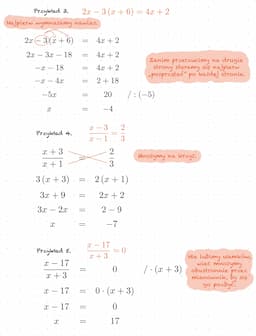 Przykład 3. 2x − 3(x + 6) = 4x + 2
Najpierw wymnażamy nawias.
2x − 3(x + 6) = 4x + 2
2x − 3x − 18 = 4x + 2
−x − 18 = 4x + 2
−x − 4x = 2 + 18
−5x = 20 / : (−5)
x = −4
Zanim przerzucimy na drugie
strony staramy się najpierw
„posprzątać” po każdej stronie.
Przykład 4. x − 3 / x − 1 = 2 / 3
x + 3 / x + 1 = 2 / 3
Mnożymy na krzyż.
3 (x + 3) = 2 (x + 1)
3x + 9 = 2x + 2
3x − 2x = 2 − 9
x = −7
Przykład 5. x − 17 / x + 3 = 0
x − 17 / x + 3 = 0 / · (x + 3)
x − 17 = 0 · (x + 3)
x − 17 = 0
x = 17
Nie lubimy ułamków,
więc mnożymy
obustronnie przez
mianownik, by się
go pozbyć.